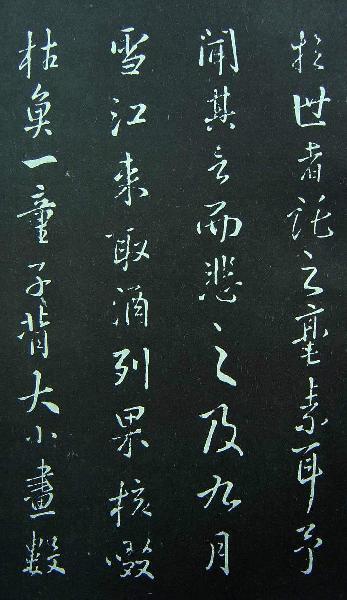 於世者託之毫素耳予
聞其言而悲之及九月
雪江来取酒列果核啜
枯魚一童子背大小畫數